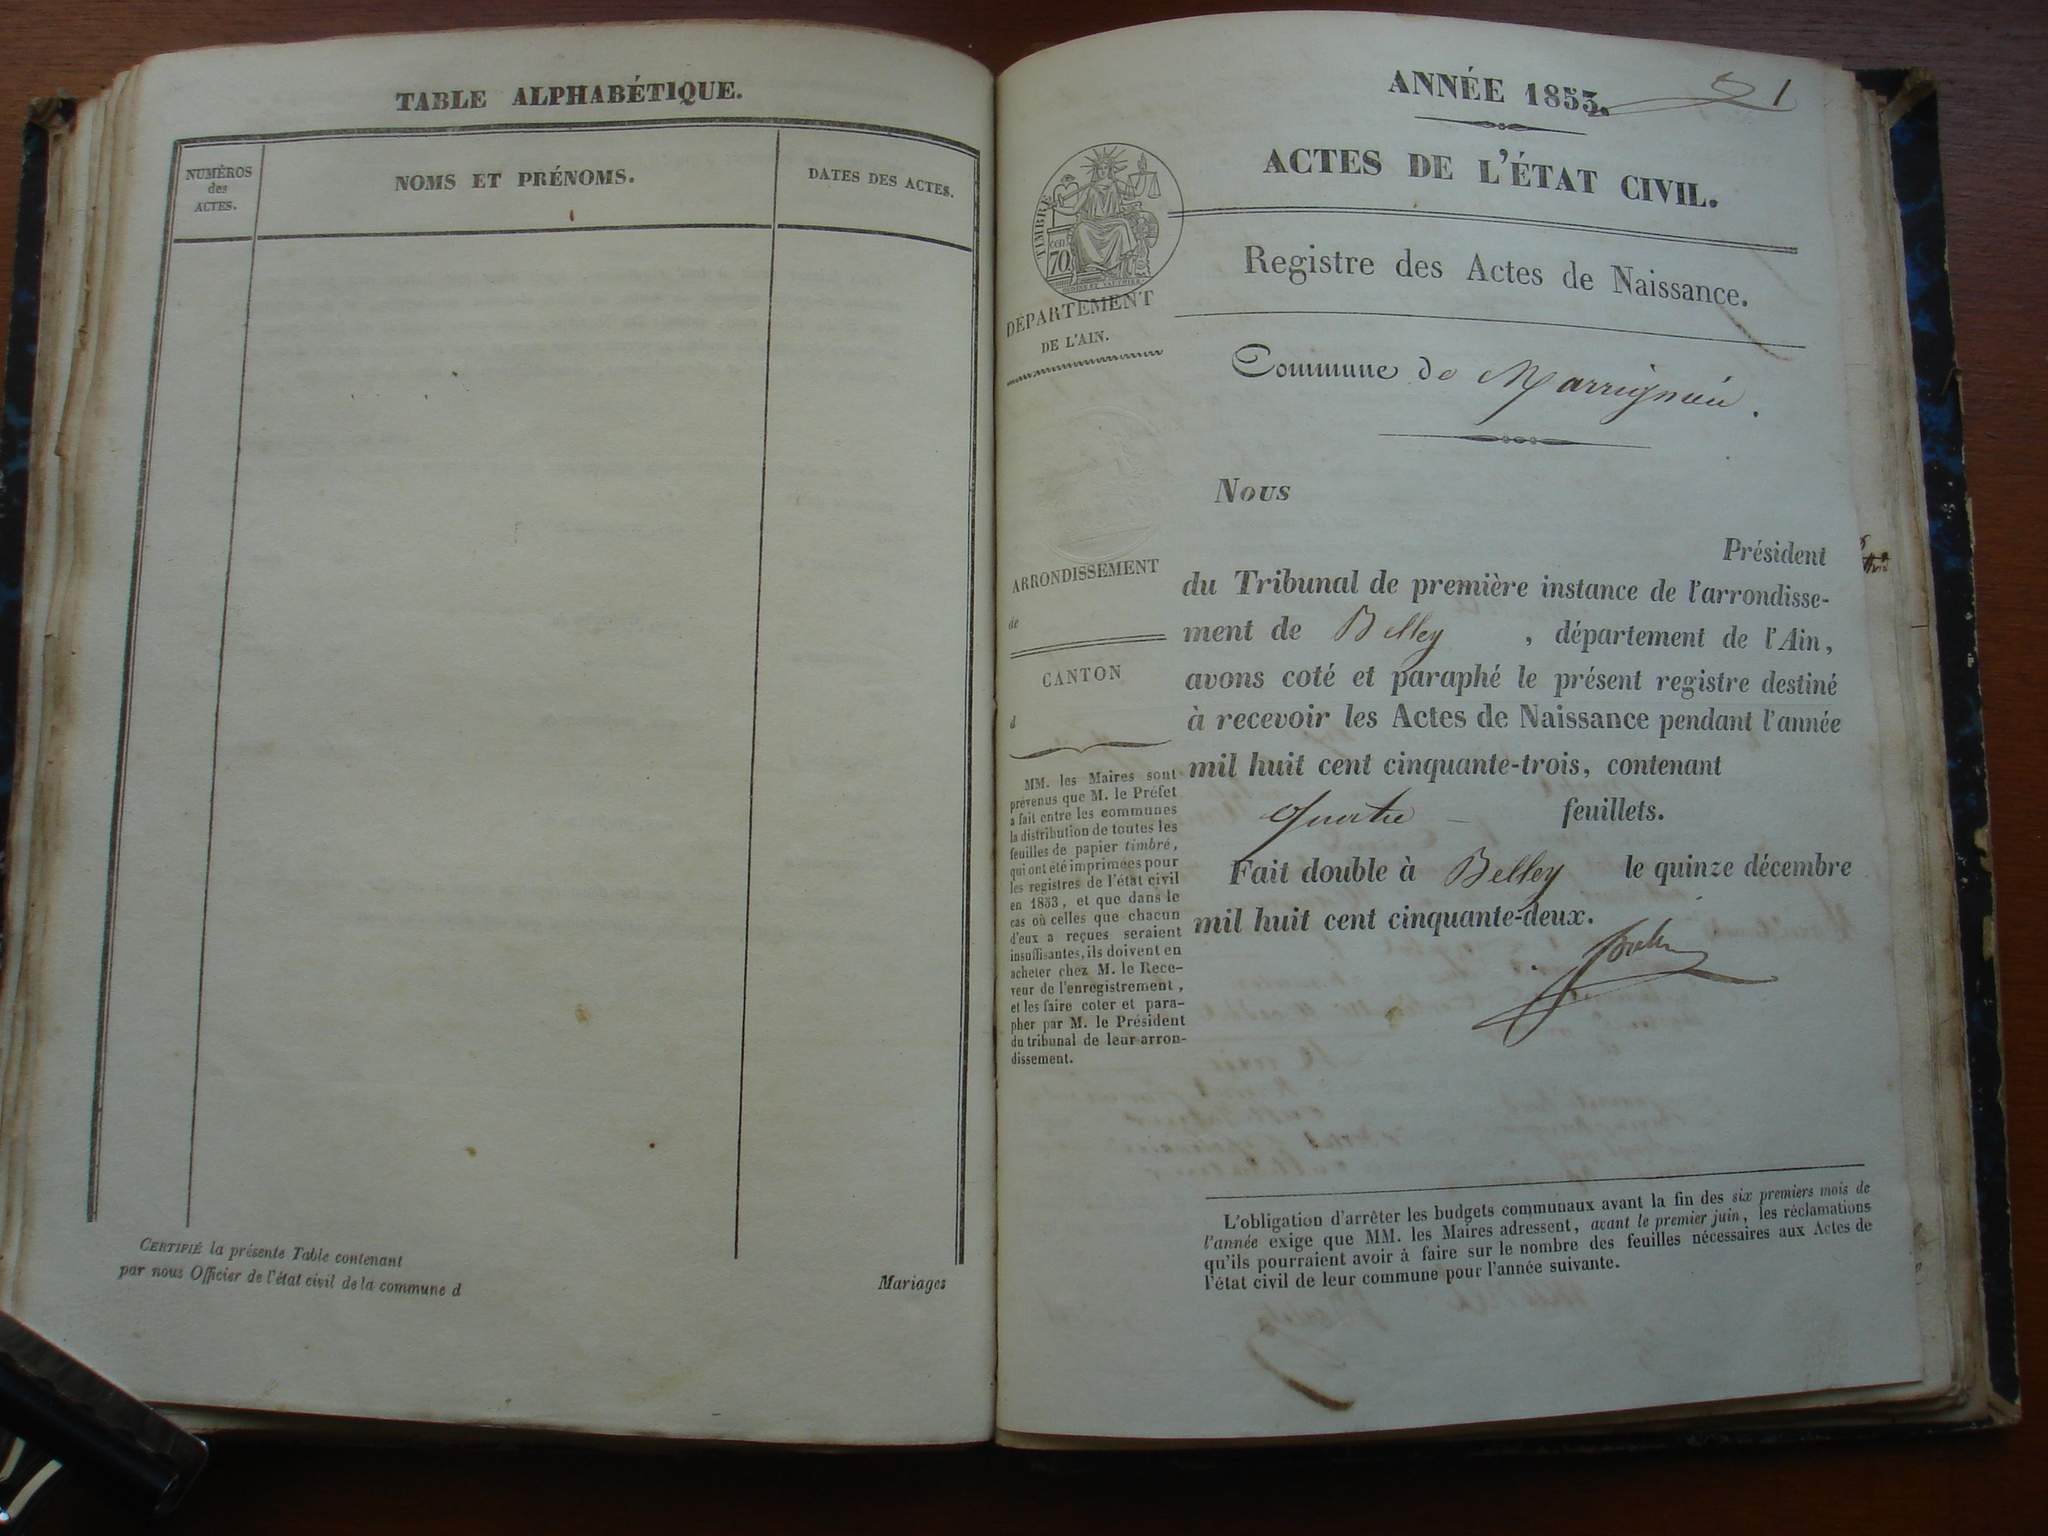 TABLE ALPHABÉTIQUE.
NUMÉROS
des
ACTES.
NOMS ET PRÉNOMS.
DATES DES ACTES.
CERTIFIÉ la présente Table contenant
par nous Officier de l'état civil de la commune d
Mariages
ANNÉE 1853.
1
ACTES DE L'ÉTAT CIVIL.
TIMBRE
cen
70
Registre des Actes de Naissance.
DÉPARTEMENT
DE L'AIN.
Commune de Marrignieu.
Nous
Président
du Tribunal de première instance de l'arrondisse-
ment de Belley, département de l'Ain,
avons coté et paraphé le présent registre destiné
à recevoir les Actes de Naissance pendant l'année
mil huit cent cinquante-trois, contenant
Quatre – feuillets.
Fait double à Belley le quinze décembre
mil huit cent cinquante-deux.
ARRONDISSEMENT
de
CANTON
d
MM. les Maires sont
prévenus que M. le Préfet
a fait entre les communes
la distribution de toutes les
feuilles de papier timbré,
qui ont été imprimées pour
les registres de l'état civil
en 1853, et que dans le
cas où celles que chacun
d'eux a reçues seraient
insuffisantes, ils doivent en
acheter chez M. le Rece-
veur de l'enregistrement,
et les faire coter et para-
pher par M. le Président
du tribunal de leur arron-
dissement.
L'obligation d'arrêter les budgets communaux avant la fin des six premiers mois de
l'année exige que MM. les Maires adressent, avant le premier juin, les réclamations
qu'ils pourraient avoir à faire sur le nombre des feuilles nécessaires aux Actes de
l'état civil de leur commune pour l'année suivante.